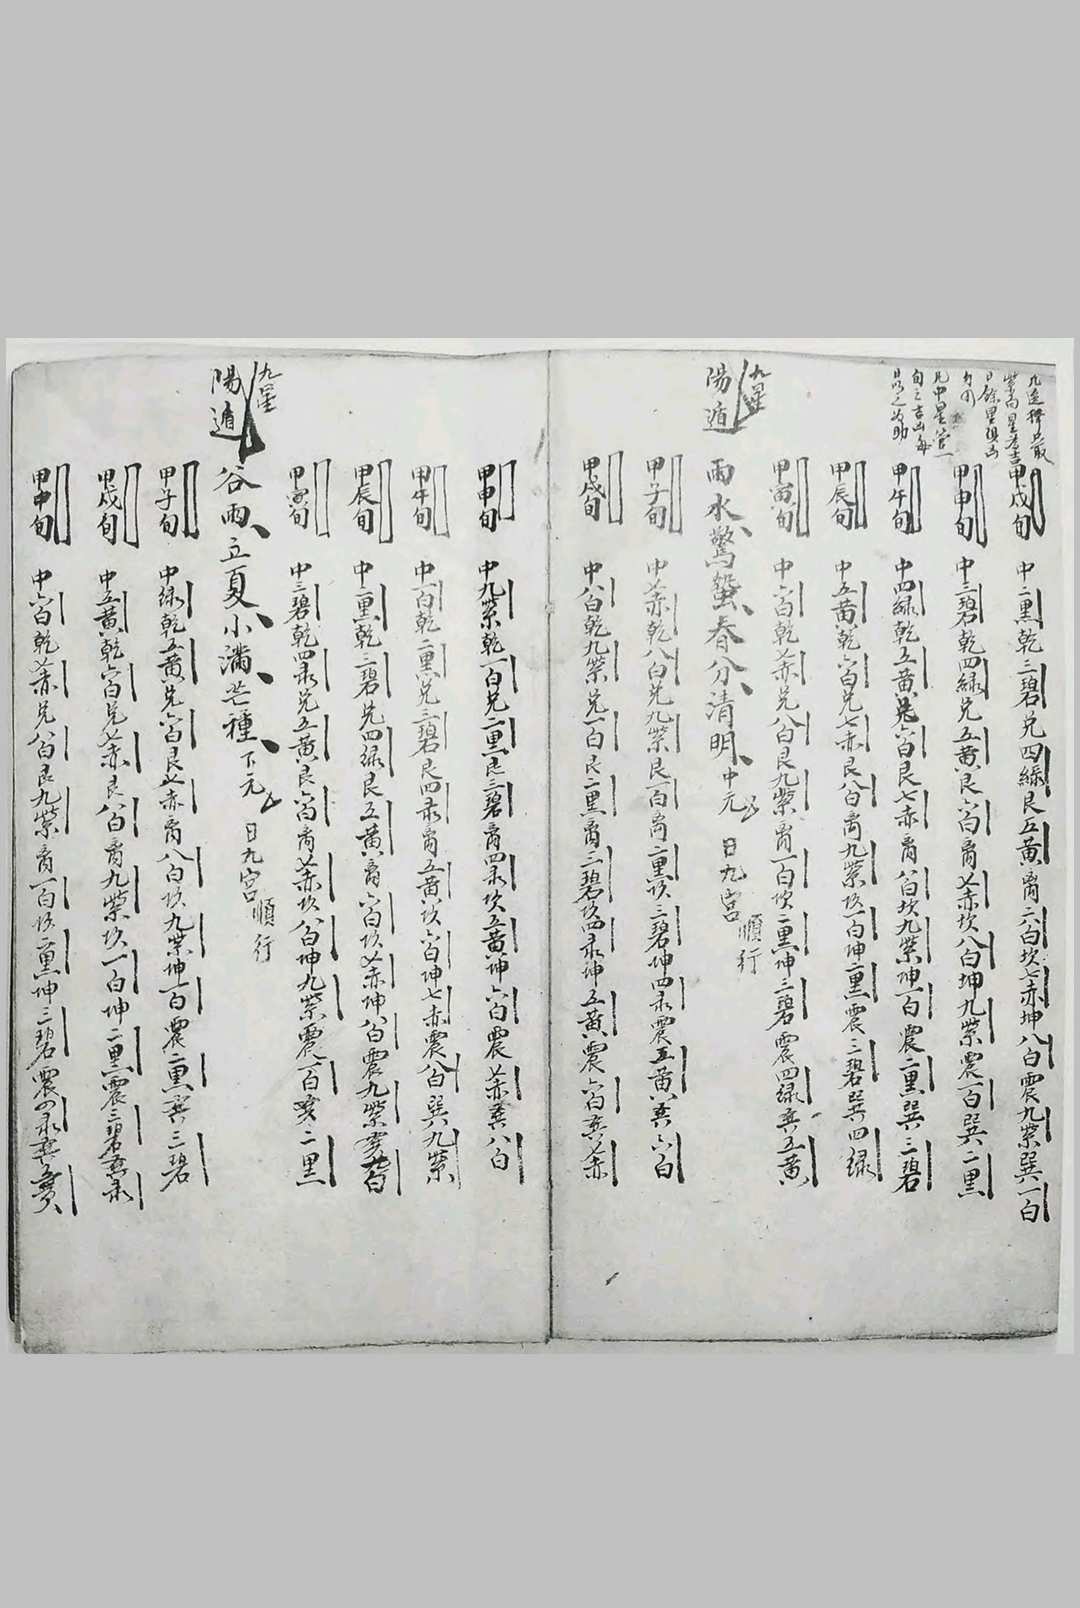 甲戌旬 中二黑乾三碧兌四綠艮五黃离六白坎七赤坤八白震九紫巽一白
甲申旬 中三碧乾四綠兌五黃艮六白离七赤坎八白坤九紫震一白巽二黑
甲午旬 中四綠乾五黃兌六白艮七赤离八白坎九紫坤一白震二黑巽三碧
甲辰旬 中五黃乾六白兌七赤艮八白离九紫坎一白坤二黑震三碧巽四綠
甲寅旬 中六白乾七赤兌八白艮九紫离一白坎二黑坤三碧震四綠巽五黃
九星
陽遁 雨水驚蟄春分清明中元 日九宮順行
甲子旬 中七赤乾八白兌九紫艮一白离二黑坎三碧坤四彔震五黃巽六白
甲戌旬 中八白乾九紫兌一白艮二黑离三碧坎四彔坤五黃震六白巽七赤
甲申旬 中九紫乾一白兌二黑艮三碧离四彔坎五黃坤六白震七赤巽八白
甲午旬 中一白乾二黑兌三碧艮四彔离五黃坎六白坤七赤震八白巽九紫
甲辰旬 中二黑乾三碧兌四綠艮五黃离六白坎七赤坤八白震九紫巽一白
甲寅旬 中三碧乾四彔兌五黃艮六白离七赤坎八白坤九紫震一白巽二黑
九星
陽遁 谷雨立夏小滿芒種下元 日九宮順行
甲子旬 中四綠乾五黃兌六白艮七赤离八白坎九紫坤一白震二黑巽三碧
甲戌旬 中五黃乾六白兌七赤艮八白离九紫坎一白坤二黑震三碧巽四彔
甲申旬 中六白乾七赤兌八白艮九紫离一白坎二黑坤三碧震四彔巽五黃